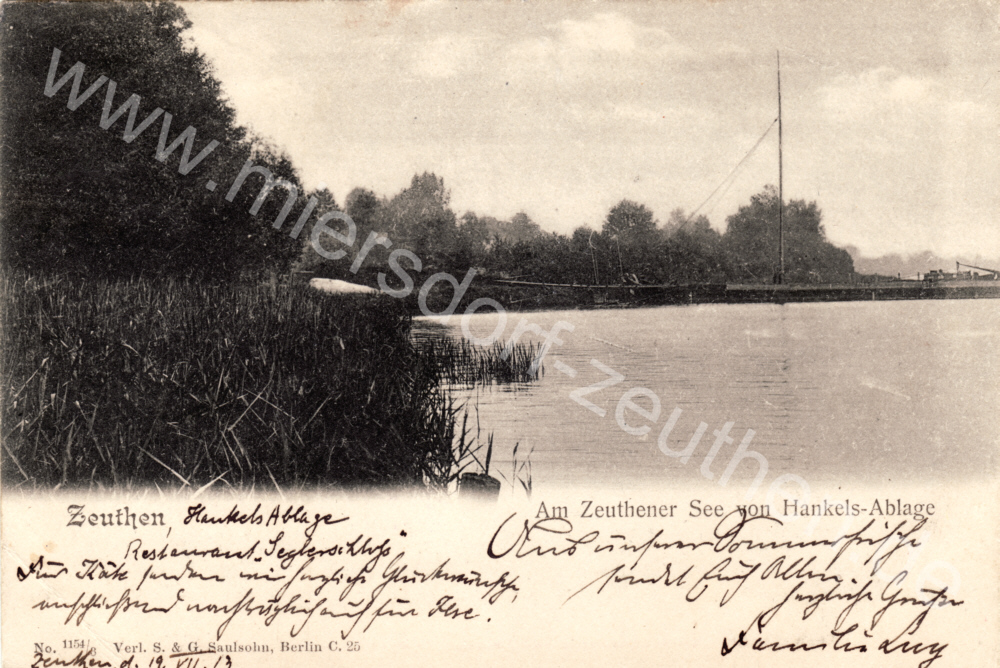 www.miersdorf-zeuthen.de
Am Zeuthener See von Hankels-Ablage
Zeuthen, Hankels Ablage
Restaurant "Seglerschloß"
Für Käte senden wir herzliche Glückwünsche,
anschließend nachträglich auch für Ilse.
Aus unserer Sommerfrische
sendet Euch Allen
herzliche Grüße
Familie
No. 1154/8 Verl. S. & G. Saulsohn, Berlin C. 25
Zeuthen d. 19. VII. 13